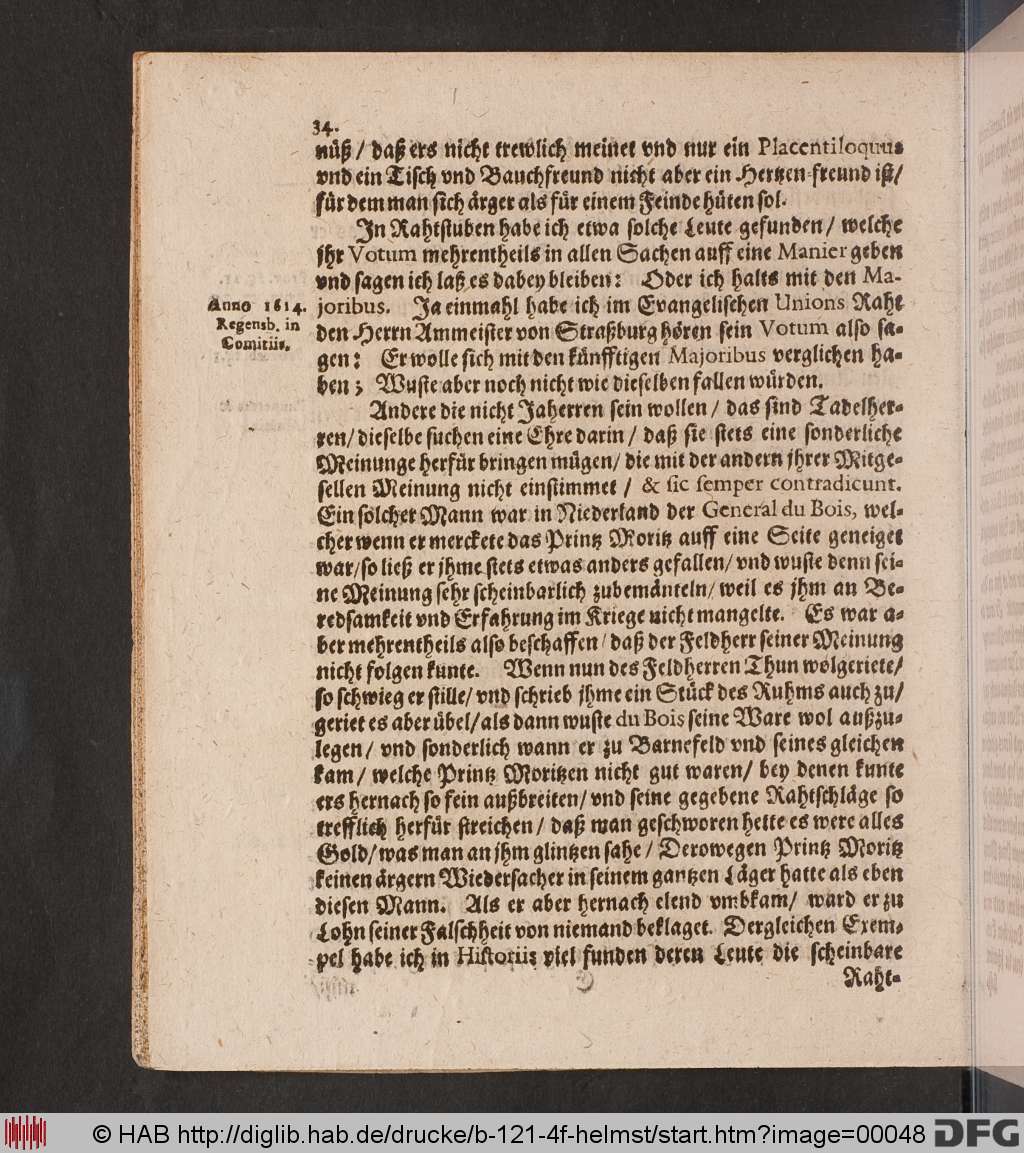 34.
nüß / daß ers nicht trewlich meinet vnd nur ein Placentiloquus
vnd ein Tisch vnd Bauchfreund nicht aber ein Hertzen-freund ist/
für dem man sich ärger als für einem Feinde hüten sol.
In Rahtstuben habe ich etwa solche Leute gefunden / welche
jhr Votum mehrentheils in allen Sachen auff eine Manier geben
vnd sagen ich laß es dabey bleiben: Oder ich halts mit den Ma-
Anno 1614.
Regensb. in
Comitiis.
joribus. Ja einmahl habe ich im Evangelischen Unions Raht
den Herrn Ammeister von Straßburg hören sein Votum also sa-
gen: Er wolle sich mit den künfftigen Majoribus verglichen ha-
ben; Wuste aber noch nicht wie dieselben fallen würden.
Andere die nicht Jaherren sein wollen / das sind Tadelher-
ren/ dieselbe suchen eine Ehre darin / daß sie stets eine sonderliche
Meinunge herfür bringen mügen/ die mit der andern jhrer Mitge-
sellen Meinung nicht einstimmet / & sic semper contradicunt.
Ein solcher Mann war in Niederland der General du Bois, wel-
cher wenn er merckete das Printz Moritz auff eine Seite geneiget
war/ so ließ er jhme stets etwas anders gefallen/ vnd wuste denn sei-
ne Meinung sehr scheinbarlich zubemänteln/ weil es jhm an Be-
redsamkeit vnd Erfahrung im Kriege nicht mangelte. Es war a-
ber mehrentheils also beschaffen/ daß der Feldherr seiner Meinung
nicht folgen kunte. Wenn nun des Feldherren Thun wolgeriete/
so schwieg er stille/ vnd schrieb jhme ein Stück des Ruhms auch zu/
geriet es aber übel/ als dann wuste du Bois seine Ware wol außzu-
legen / vnd sonderlich wann er zu Barnefeld vnd seines gleichen
kam / welche Printz Moritzen nicht gut waren/ bey denen kunte
ers hernach so fein außbreiten/ vnd seine gegebene Rahtschläge so
trefflich herfür streichen / daß man geschworen hette es were alles
Gold/ was man an jhm glintzen sahe / Derowegen Printz Moritz
keinen ärgern Wiedersacher in seinem gantzen Läger hatte als eben
diesen Mann. Als er aber hernach elend vmbkam/ ward er zu
Lohn seiner Falschheit von niemand beklaget. Dergleichen Exem-
pel habe ich in Historiis viel funden deren Leute die scheinbare
Raht-
© HAB http://diglib.hab.de/drucke/b-121-4f-helmst/start.htm?image=00048
DFG